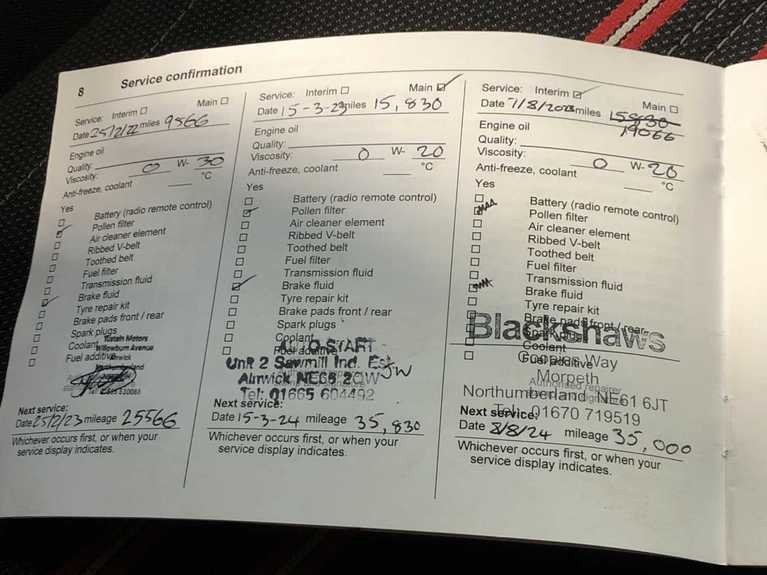 8 Service confirmation
Service: Interim Main
Date 25/2/22 miles 9566
Engine oil
Quality:
Viscosity: 0 W- 30
Anti-freeze, coolant °C
Yes
Battery (radio remote control)
Pollen filter
Air cleaner element
Ribbed V-belt
Toothed belt
Fuel filter
Transmission fluid
Brake fluid
Tyre repair kit
Brake pads front / rear
Spark plugs
Coolant
Fuel additive
Willowburn Avenue
Alnwick
Next service:
Date 25/2/23 mileage 25566
Whichever occurs first, or when your
service display indicates.
Service: Interim Main ✓
Date 15-3-23 miles 15,830
Engine oil
Quality:
Viscosity: 0 W- 20
Anti-freeze, coolant °C
Yes
Battery (radio remote control)
Pollen filter
Air cleaner element
Ribbed V-belt
Toothed belt
Fuel filter
Transmission fluid
Brake fluid
Tyre repair kit
Brake pads front / rear
Spark plugs
Coolant
Fuel additive
AUTO-START
Unit 2 Sawmill Ind. Est
Alnwick NE66 2QW
Tel: 01665 604492
Next service:
Date 15-3-24 mileage 35,830
Whichever occurs first, or when your
service display indicates.
Service: Interim ✓ Main
Date 7/8/2023 miles 15830
19066
Engine oil
Quality:
Viscosity: 0 W- 20
Anti-freeze, coolant °C
Yes
Battery (radio remote control)
Pollen filter
Air cleaner element
Ribbed V-belt
Toothed belt
Fuel filter
Transmission fluid
Brake fluid
Tyre repair kit
Brake pads front / rear
Spark plugs
Coolant
Fuel additive
Blackshaws
Coopies Way
Morpeth
Authorised repairer
Northumberland NE61 6JT
Tel: 01670 719519
Next service:
Date 8/8/24 mileage 35,000
Whichever occurs first, or when your
service display indicates.